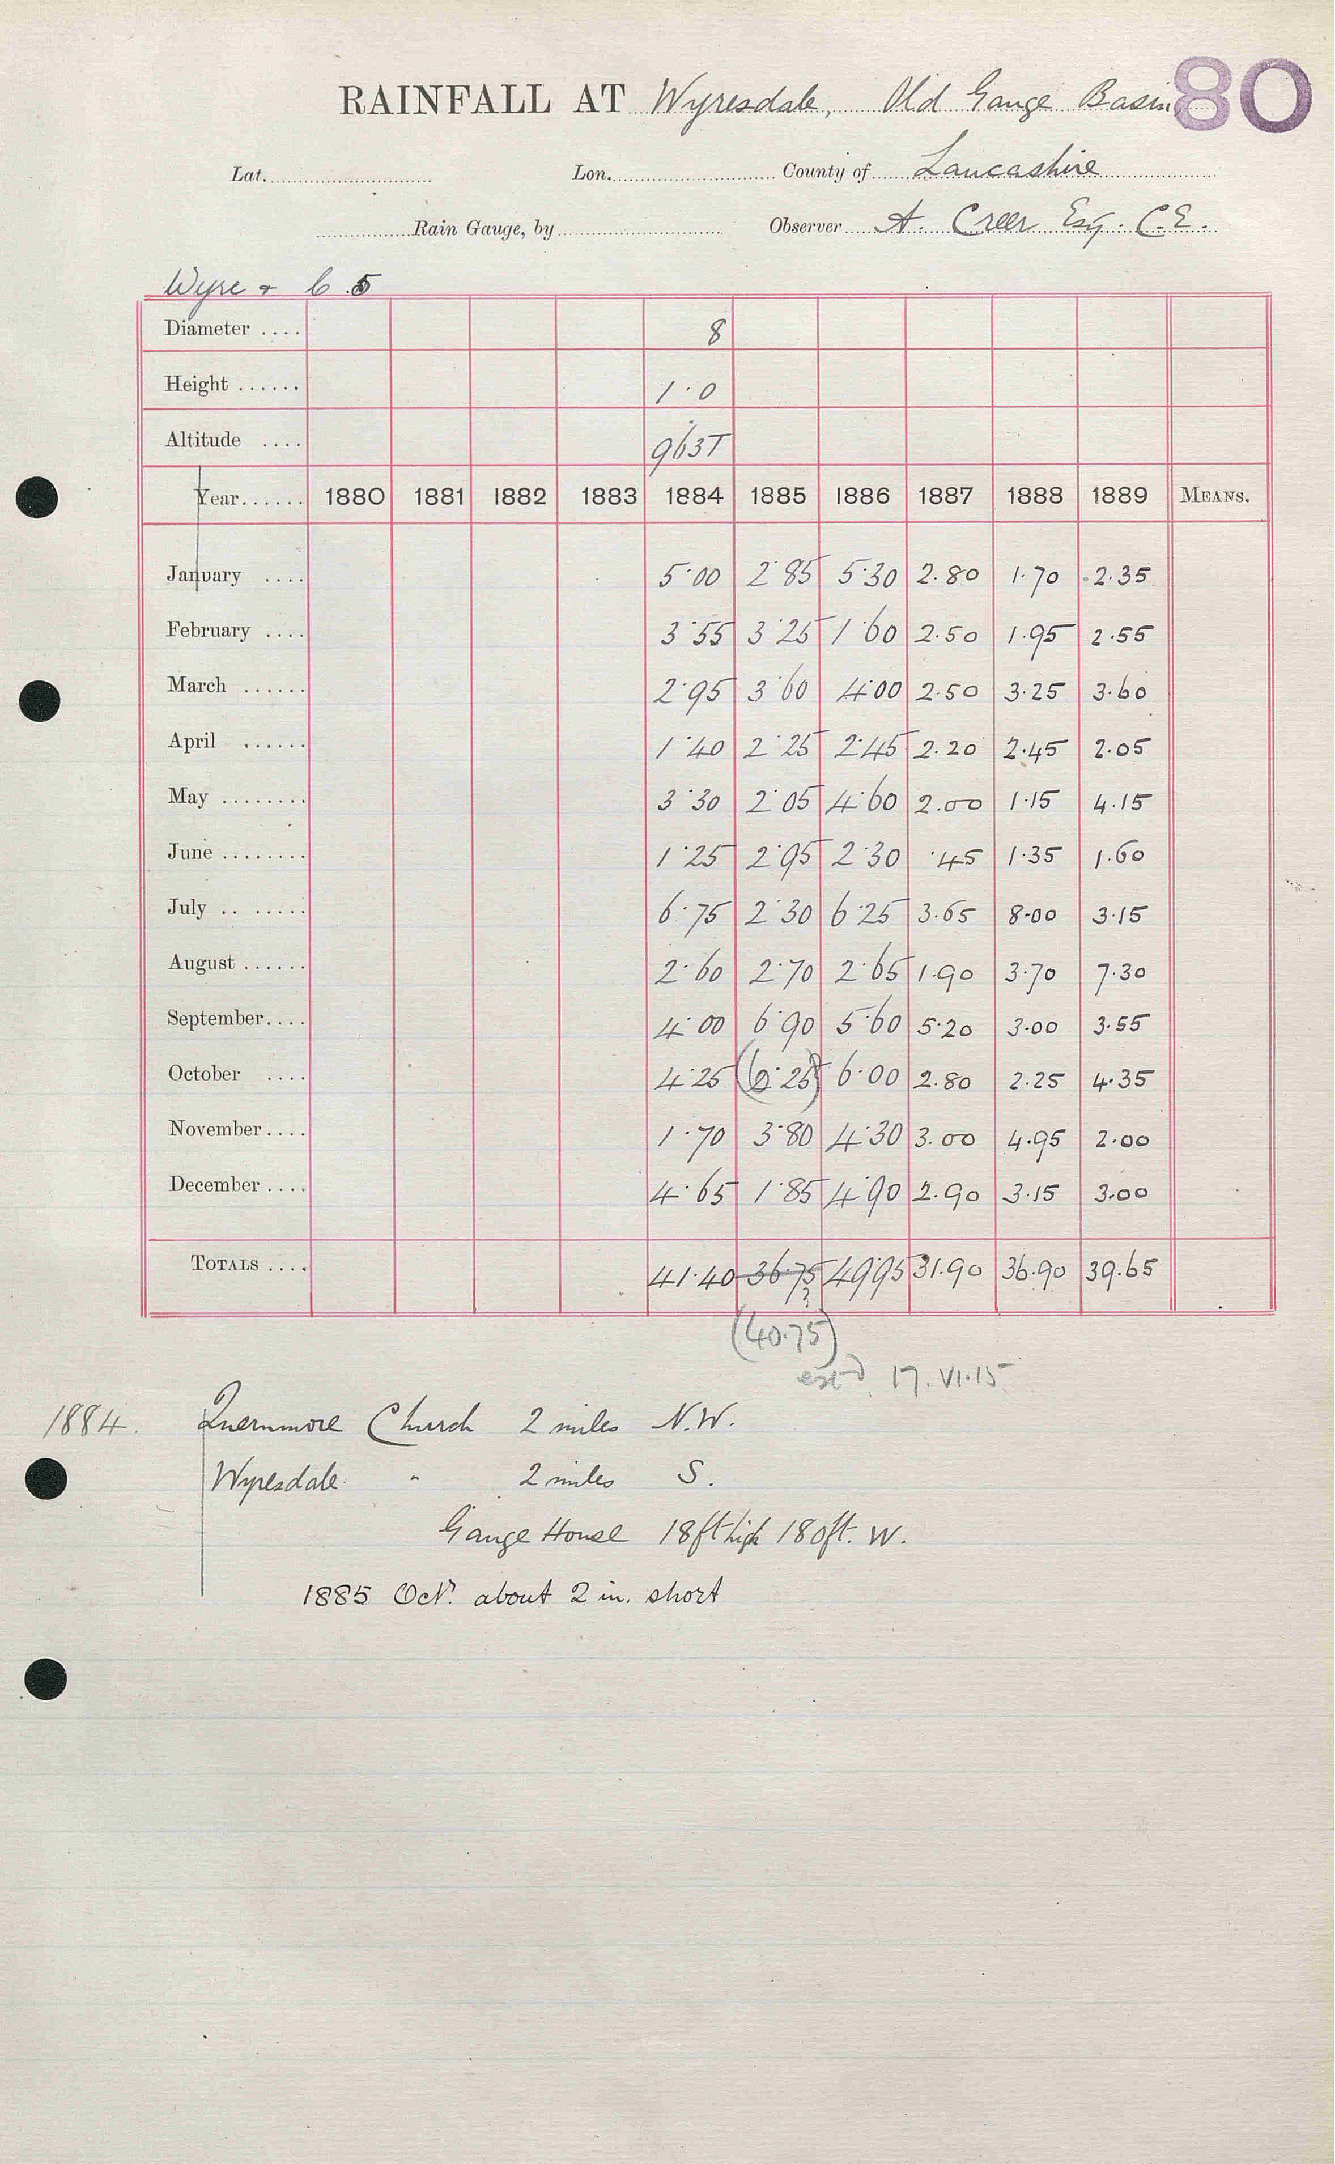 80
RAINFALL AT Wyresdale, Old Gauge Basin
Lat. Lon. County of Lancashire
Rain Gauge, by Observer A. Creer Esq. C.E.
Wyre & C. 5
Diameter .... 8
Height ...... 1.0
Altitude .... 963T
Year...... 1880 1881 1882 1883 1884 1885 1886 1887 1888 1889 MEANS.
January .... 5.00 2.85 5.30 2.80 1.70 2.35
February .... 3.55 3.25 1.60 2.50 1.95 2.55
March ...... 2.95 3.60 4.00 2.50 3.25 3.60
April ...... 1.40 2.25 2.45 2.20 2.45 2.05
May ........ 3.30 2.05 4.60 2.00 1.15 4.15
June ........ 1.25 2.95 2.30 .45 1.35 1.60
July .. ..... 6.75 2.30 6.25 3.65 8.00 3.15
August ...... 2.60 2.70 2.65 1.90 3.70 7.30
September.... 4.00 6.90 5.60 5.20 3.00 3.55
October .... 4.25 (6.25) 6.00 2.80 2.25 4.35
November.... 1.70 3.80 4.30 3.00 4.95 2.00
December .... 4.65 1.85 4.90 2.90 3.15 3.00
TOTALS .... 41.40 36.75 49.95 31.90 36.90 39.65
?
(40.75)
estd. 17.VI.15
1884. Quernmore Church 2 miles N.W.
Wyresdale " 2 miles S.
Gauge House 18ft high 180ft. W.
1885 Octr. about 2 in. short